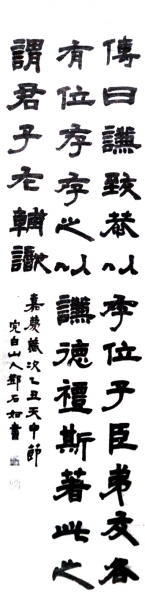 傳曰謙致恭以存位子臣弟友各
有位存存之以謙德禮斯著此之
謂君子左輔
嘉慶歲次乙丑天中節
完白山人鄧石如書